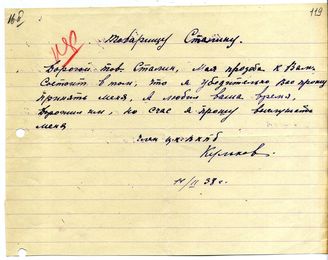 119
Товарищу Сталину.
Дорогой тов. Сталин, Мая прозба к Вам.
Состоит в том, что я убедительно вас прошу
принять меня, Я любил ваше время,
Дорожил им, но счас я прошу выслушать
меня
Член цк-вкпб
11/II 38 г.